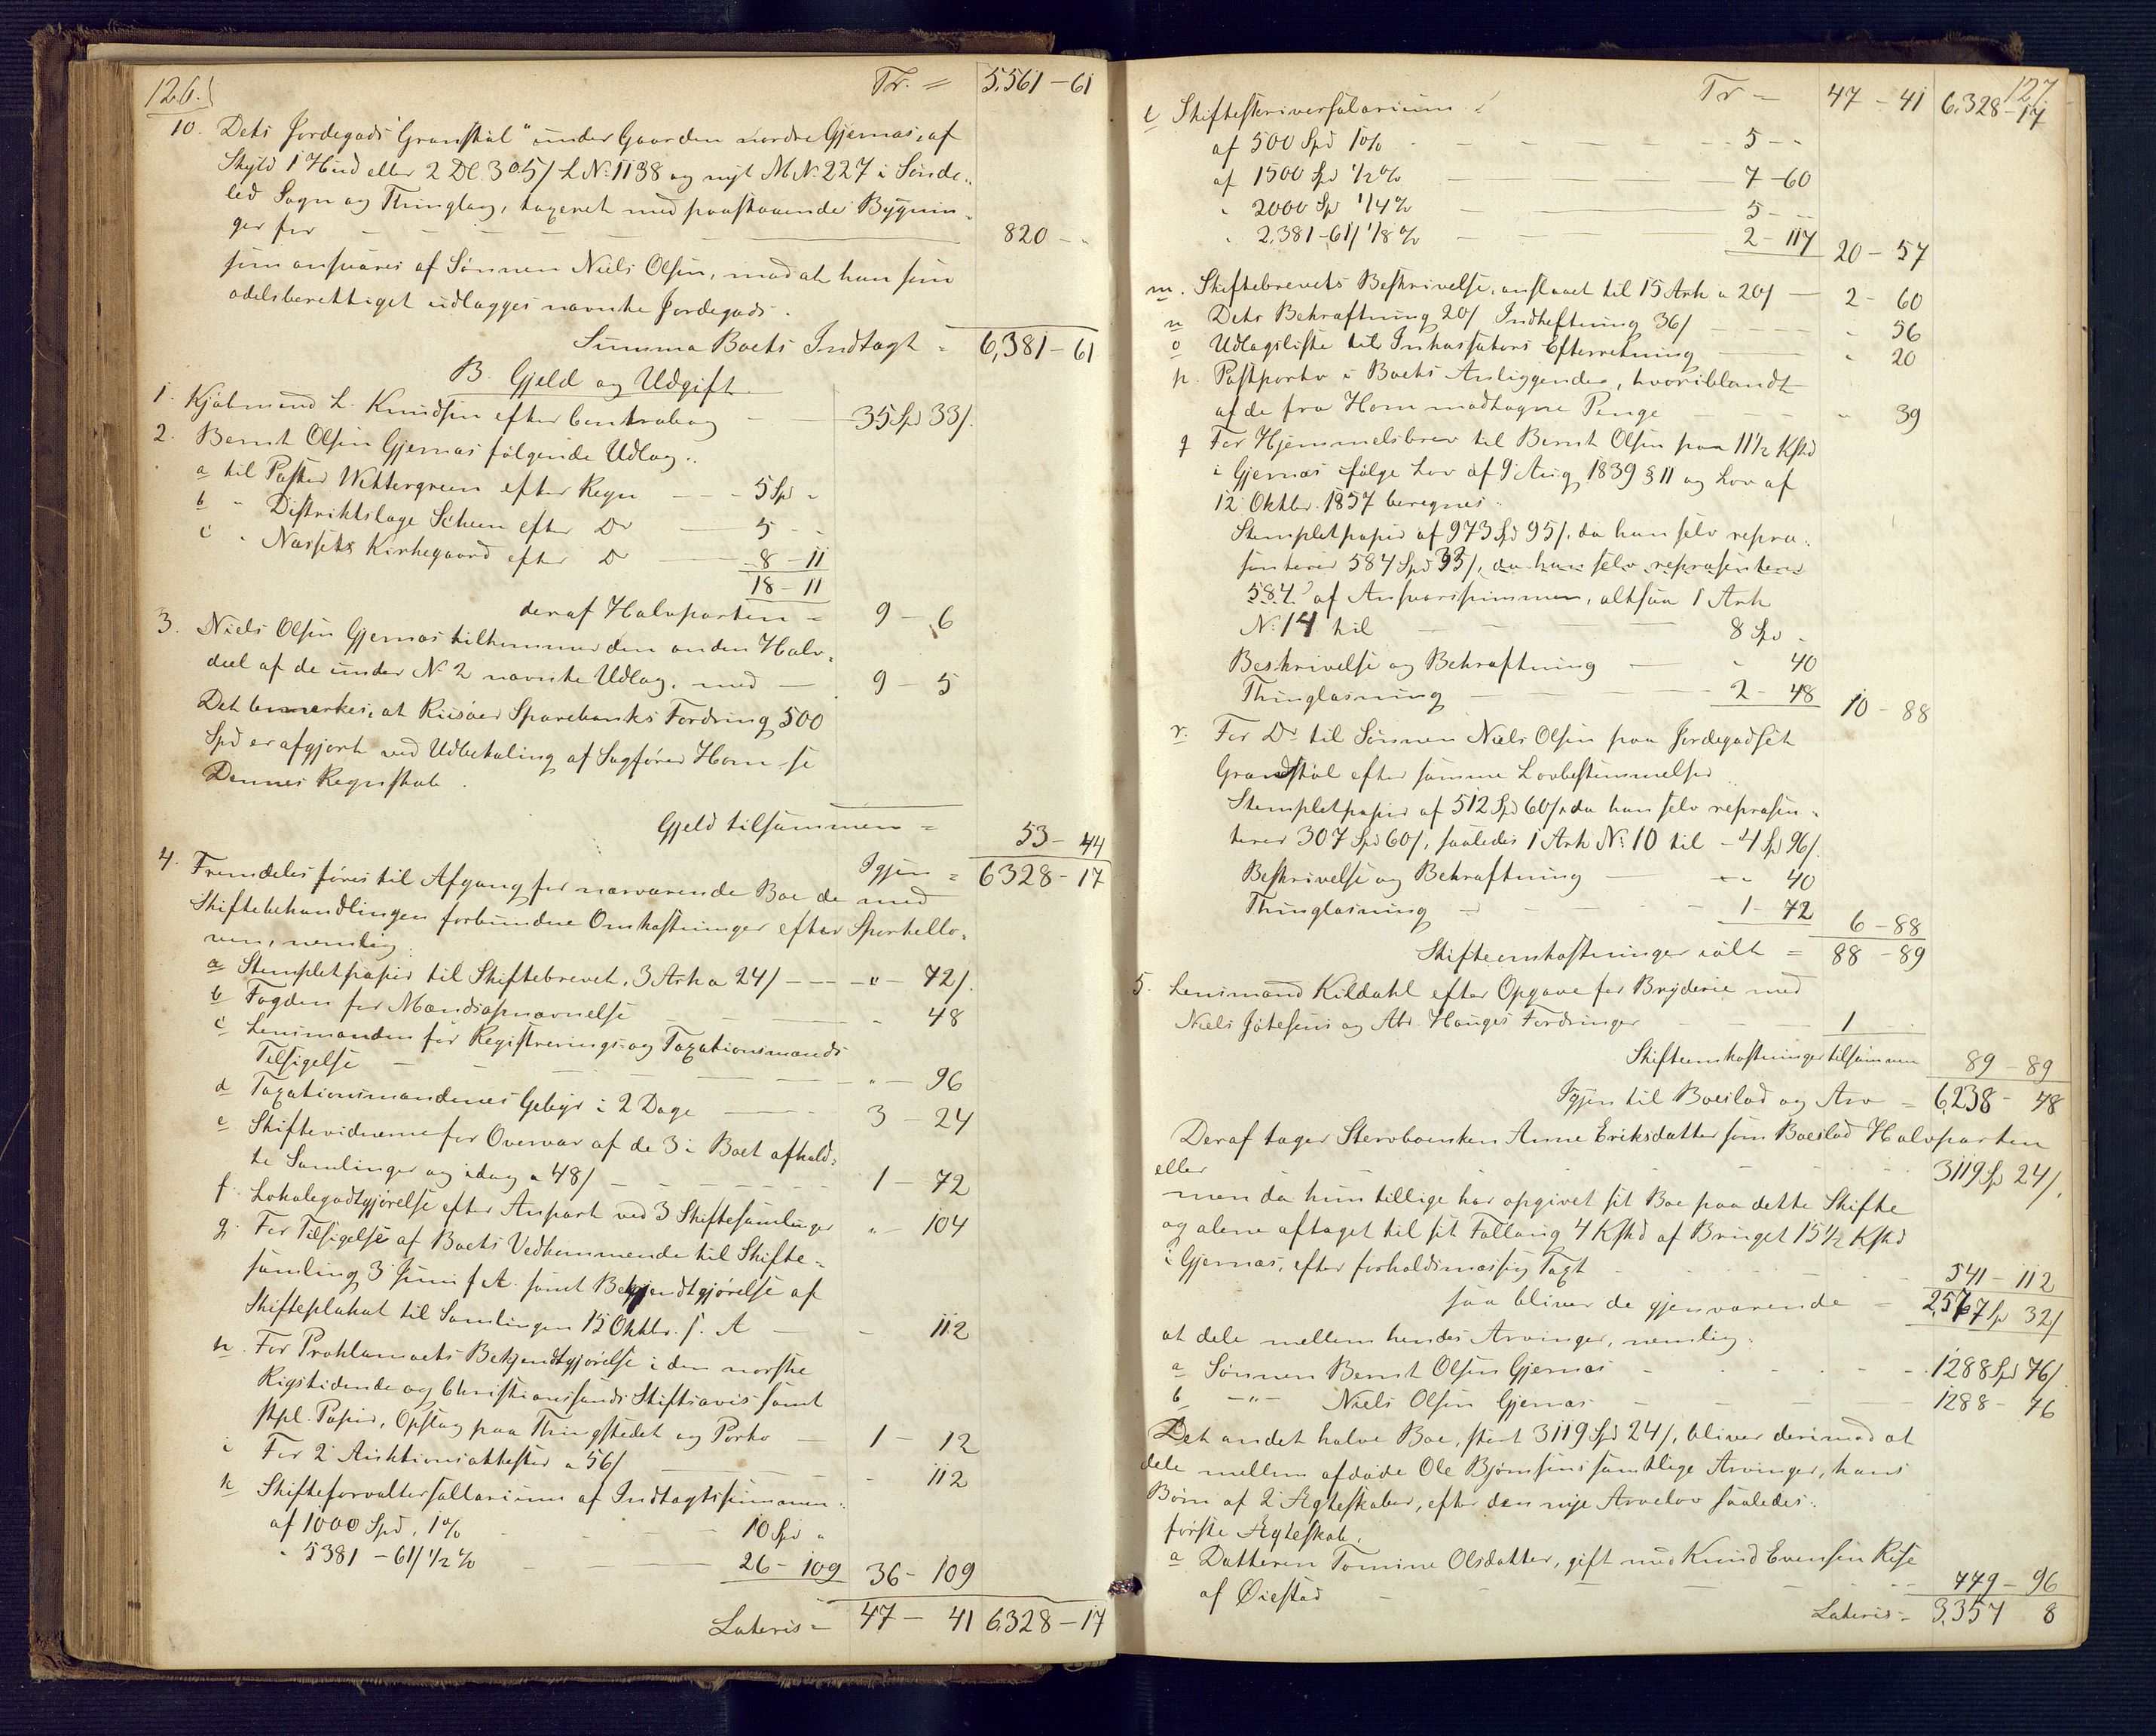 126.
Tr. = 5,561 - 61
10. Dets Jordegods "Granstøl" under Gaarden nordre Gjernæs, af
Skyld 1 Hud eller 2 Dl. 3 o 5/ L.No 1138 og nyt M.No 227 i Sønde-
led Sogn og Thinglag, taxeret med paastaaende Bygnin-
ger for 820 - "
som ansvares af Sønnen Niels Olsen, mod at han som
odelsberettiget udlægges nævnte Jordegods.
Summa Boets Indtægt = 6,381 - 61
B. Gjeld og Udgift.
1. Kjøbmand L. Knudsen efter Contrabog 35 Spd 33/.
2. Bernt Olsen Gjernæs følgende Udlæg:
a til Pastor Wettergreen efter Regn 5 Spd "
b " Distriktslæge Scheen efter Do 5 - "
c " Næssets Kirkegaard efter Do 8 - 11
18 - 11
deraf Halvparten = 9 - 6
3. Niels Olsen Gjernæs tilkommer den anden Halv-
deel af de under No 2 nævnte Udlæg, med 9 - 5
Det bemærkes, at Riisøer Sparebanks Fordring 500
Spd er afgjort ved Udbetaling af Sagfører Horn - se
Dennes Regnskab.
Gjeld tilsammen = 53 - 44
Igjen = 6328 - 17
4. Fremdeles føres til Afgang for nærværende Boe de med
Skiftebehandlingen forbundne Omkostninger efter Sportello-
ven, nemlig:
a Stempletpapir til Skiftebrevet, 3 Ark a 24/ - " - 72/.
b Fogden for Mændsopnævnelse " 48
c Lensmanden for Registrerings- og Taxationsmænds
Tilsigelse " - 96
d Taxationsmændenes Gebyr i 2 Dage 3 - 24
e Skiftevidnerne for Overvær af de 3 i Boet afhold-
te Samlinger og idag a 48/ 1 - 72
f Lokalegodtgjørelse efter Anpart ved 3 Skiftesamlinger " - 104
g. For Tilsigelse af Boets Vedkommende til Skifte-
samling 3 Juni f. A. samt Bekjendtgjørelse af
Skifteplakat til Samlingen 15 Oktbr. f. A - 112
h. For Proklamaets Bekjendtgjørelse i den norske
Rigstidende og Christianssands Stiftsavis samt
stpl. Papir, Opslag paa Thingstedet og Porto 1 - 12
i For 2 Auktionsattester a 56/ - 112
k Skifteforvaltersallarium af Indtægtssummen:
af 1000 Spd, 1% 10 Spd "
" 5381 - 61/ 1/2 % 26 - 109 36 - 109
Lateris = 47 - 41 6328 - 17
127
Tr = 47 - 41 6,328 - 17
l Skifteskriversalarium:
af 500 Spd 1% 5 - "
af 1500 Spd 1/2 % 7 - 60
" 2000 Sp 1/4 % 5 - "
" 2,381 - 61/ 1/8 % 2 - 117 20 - 57
m. Skiftebrevets Beskrivelse, anslaaet til 15 Ark a 20/ 2 - 60
n Dets Bekræftning 20/ Indheftning 36/ " 56
o Udlagsliste til Inkassators Efterretning " 20
p. Postporto i Boets Anliggender, hvoriblandt
af de fra Horn modtagne Penge " 39
q For Hjemmelsbrev til Bernt Olsen paa 11 1/2 Kshd
i Gjernæs ifølge Lov af 9 Aug 1839 § 11 og Lov af
12 Oktbr. 1857 beregnes:
Stempletpapir af 973 Spd 95/, da han selv repræ-
senterer 584 Spd 33/, da han selv repræsenterer
584 af Ansvarssummen, altsaa 1 Ark
No 14 til 8 Spd -
Beskrivelse og Bekræftning " 40
Thinglæsning 2 - 48 10 - 88
r. For Do til Sønnen Niels Olsen paa Jordegodset
Granstøl efter samme Lovbestemmelser
Stempletpapir af 512 Spd 60/, da han selv repræsen-
terer 307 Spd 60/, saaledes 1 Ark No 10 til - 4 Spd 96/.
Beskrivelse og Bekræftning " 40
Thinglæsning 1 - 72 6 - 88
Skifteomkostninger ialt = 88 - 89
5. Lensmand Kildahl efter Opgave for Bryderie med
Niels Hauges Fordringer 1
Skifteomkostninger tilsammen 89 - 89
Igjen til Boeslod og Arv = 6,238 - 48
Deraf tager Stervboenken Anne Eriksdatter som Boeslod Halvparten
eller 3119 Sp 24/.
men da hun tillige har opgivet sit Boe paa dette Skifte
og alene aftaget til sit Follaug 4 Kshd af Bruget 15 1/2 Kshd
i Gjernæs, efter forholdsmæssig Taxt 541 - 112
saa bliver de gjenværende = 2,577 Sp 32/
at dele mellem hendes Arvinger, nemlig:
a Sønnen Bernt Olsen Gjernæs 1288 Spd 76/.
b - " - Niels Olsen Gjernæs 1288 - 76
Det andet halve Boe, stort 3119 Spd 24/, bliver derimod at
dele mellem afdøde Ole Bjørnsens samtlige Arvinger, hans
Børn af 2 Ægteskaber, efter den nye Arvelov saaledes:
første Ægteskab.
a Datteren Tomine Olsdatter, gift med Knud Evensen Rise
af Øiestad 779 - 96
Lateris = 3,357 8